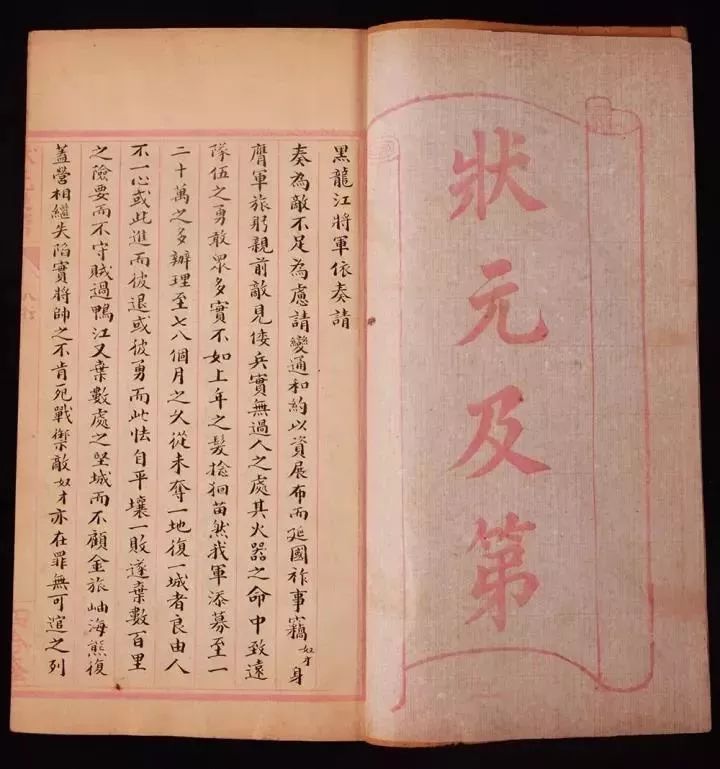 狀元及第
黑龍江將軍依奏請
奏為敵不足為慮請變通和約以資展布而延國祚事竊奴才身
膺軍旅躬親前敵見倭兵實無過人之處其火器之命中致遠
隊伍之勇敢眾多實不如上年之髮捻狪苗然我軍添募至一
二十萬之多辦理至七八個月之久從未奪一地復一城者良由人
不一心或此進而彼退或彼勇而此怯自平壤一敗遂棄數百里
之險要而不守賊過鴨江又棄數處之堅城而不顧金旅岫海熊復
蓋營相繼失陷實將帥之不肯死戰禦敵奴才亦在罪無可逭之列